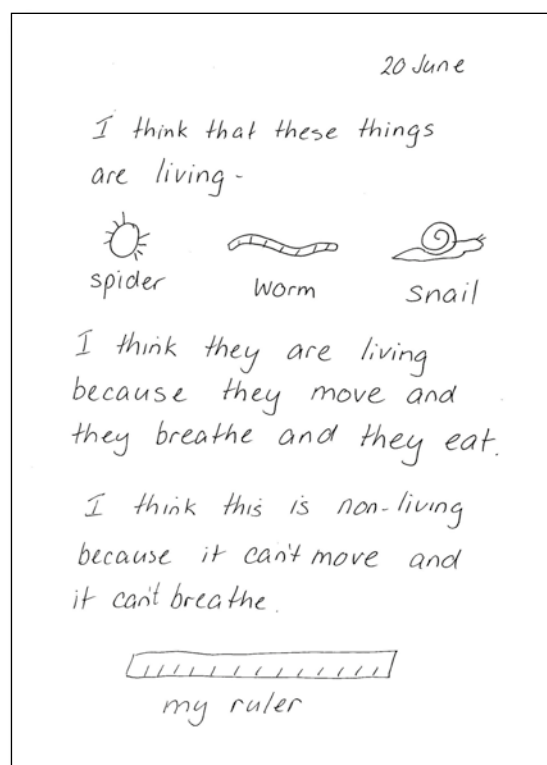 20 June
I think that these things
are living -
spider worm snail
I think they are living
because they move and
they breathe and they eat.
I think this is non-living
because it can't move and
it can't breathe.
my ruler